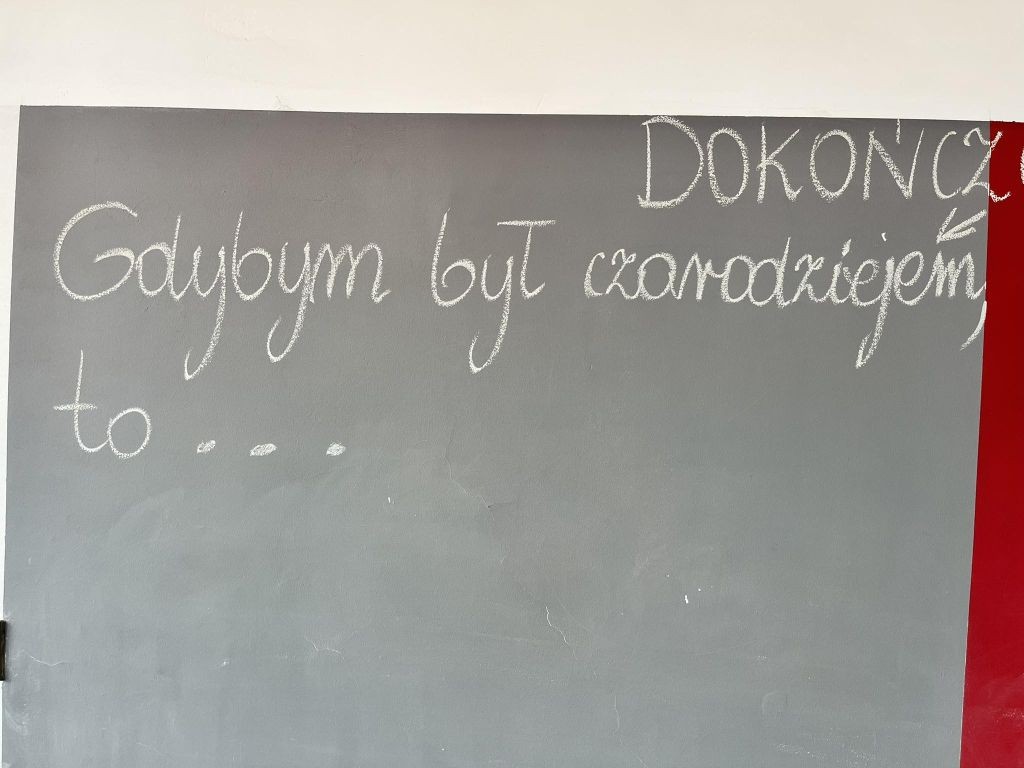 DOKOŃCZ
Gdybym był czarodziejem,
to ...